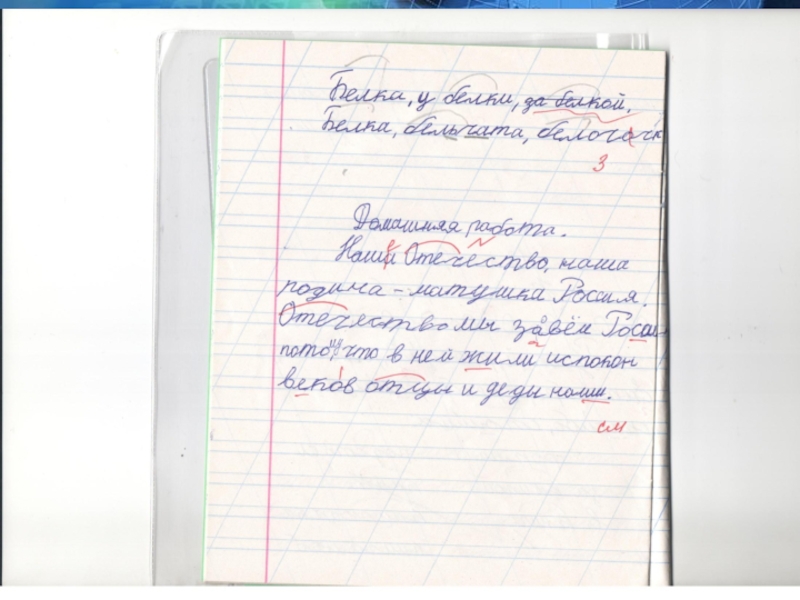 Белка, у белки, за белкой.
Белка, бельчата, белочка
3
Домашняя работа.
Наше Отечество, наша
родина - матушка Россия.
Отечество мы зовём Росси
потому, что в ней жили испокон
веков отцы и деды наши.
см